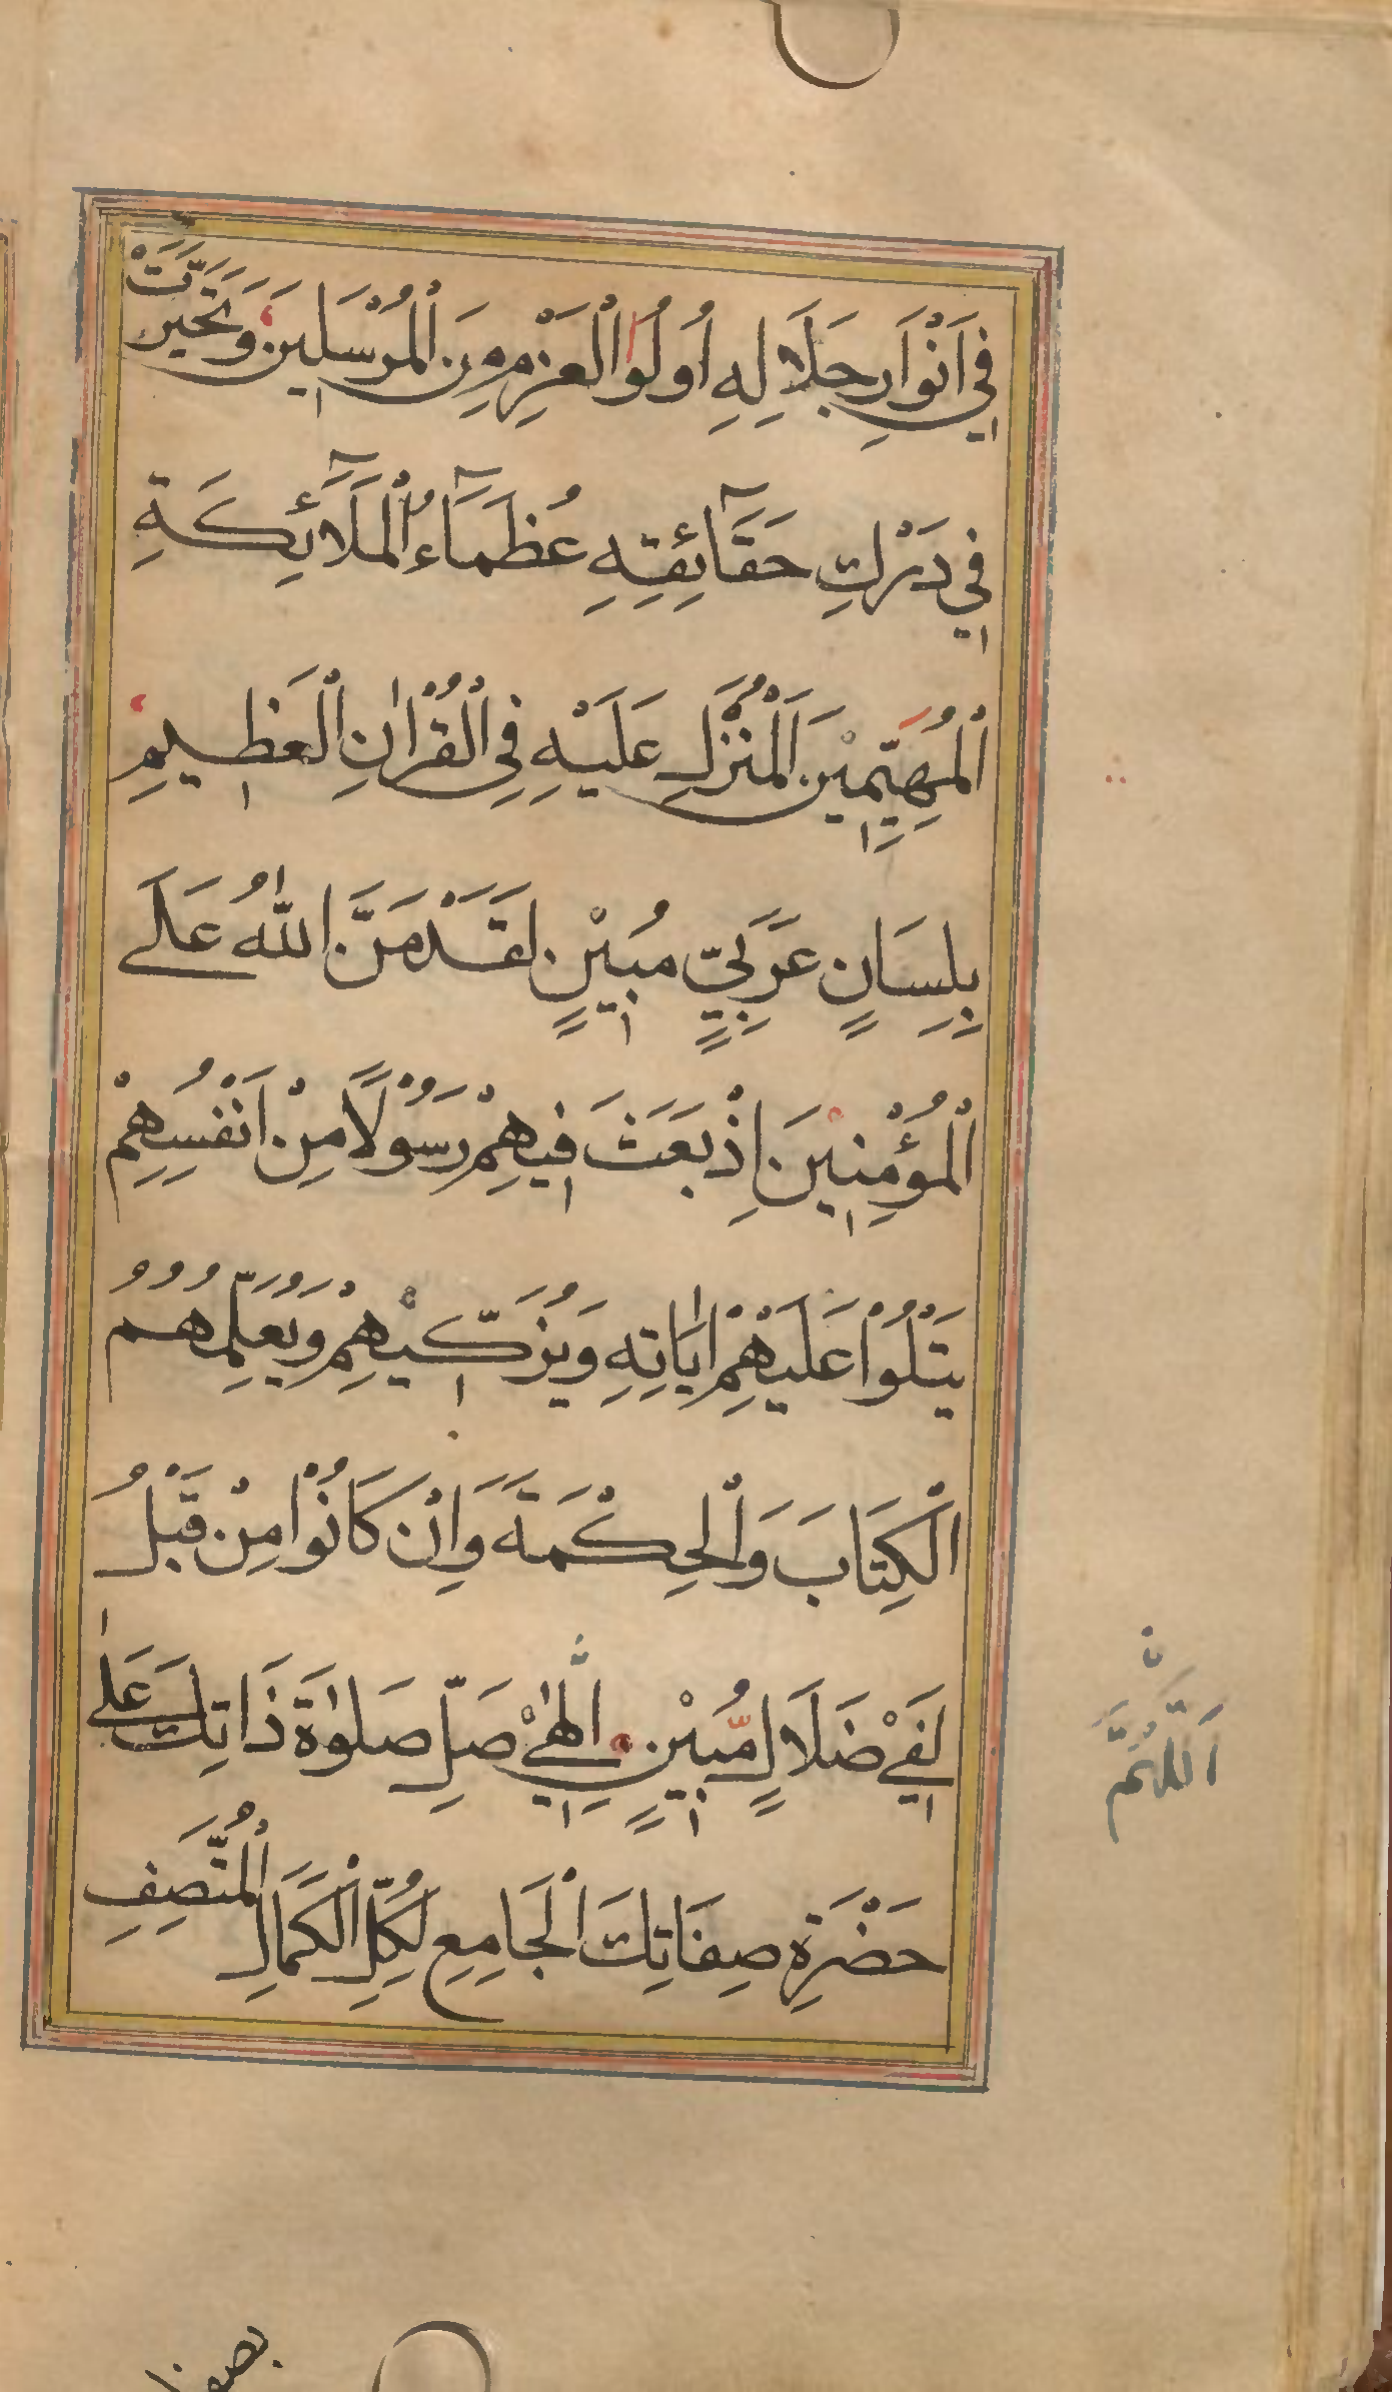 فِي اَنْوَارِ جَلَالِهِ اُولُوا الْعَزْمِ مِنَ الْمُرْسَلِينَ وَتَحَيَّرَتْ
فِي دَرْكِ حَقَآئِقِهِ عُظَمَآءُ الْمَلَآئِكَةِ
الْمُهَيَّمِيْنَ الْمُنْزَلِ عَلَيْهِ فِي الْقُرْاٰنِ الْعَظِيمِ
بِلِسَانٍ عَرَبِيٍّ مُبِيْنٍ لَقَدْ مَنَّ اللّٰهُ عَلَى
الْمُؤْمِنِيْنَ اِذْ بَعَثَ فِيهِمْ رَسُوْلًا مِنْ اَنْفُسِهِمْ
يَتْلُوْا عَلَيْهِمْ اٰيَاتِهِ وَيُزَكِّيْهِمْ وَيُعَلِّمُهُمُ
الْكِتَابَ وَالْحِكْمَةَ وَاِنْ كَانُوْا مِنْ قَبْلُ
لَفِيْ ضَلَالٍ مُّبِيْنٍ اِلٰهِيْ صَلِّ صَلٰوةَ ذَاتِكَ عَلٰى
اَللّٰهُمَّ
حَضْرَةِ صِفَاتِكَ الْجَامِعِ لِكُلِّ الْكَمَالِ الْمُتَّصِفِ